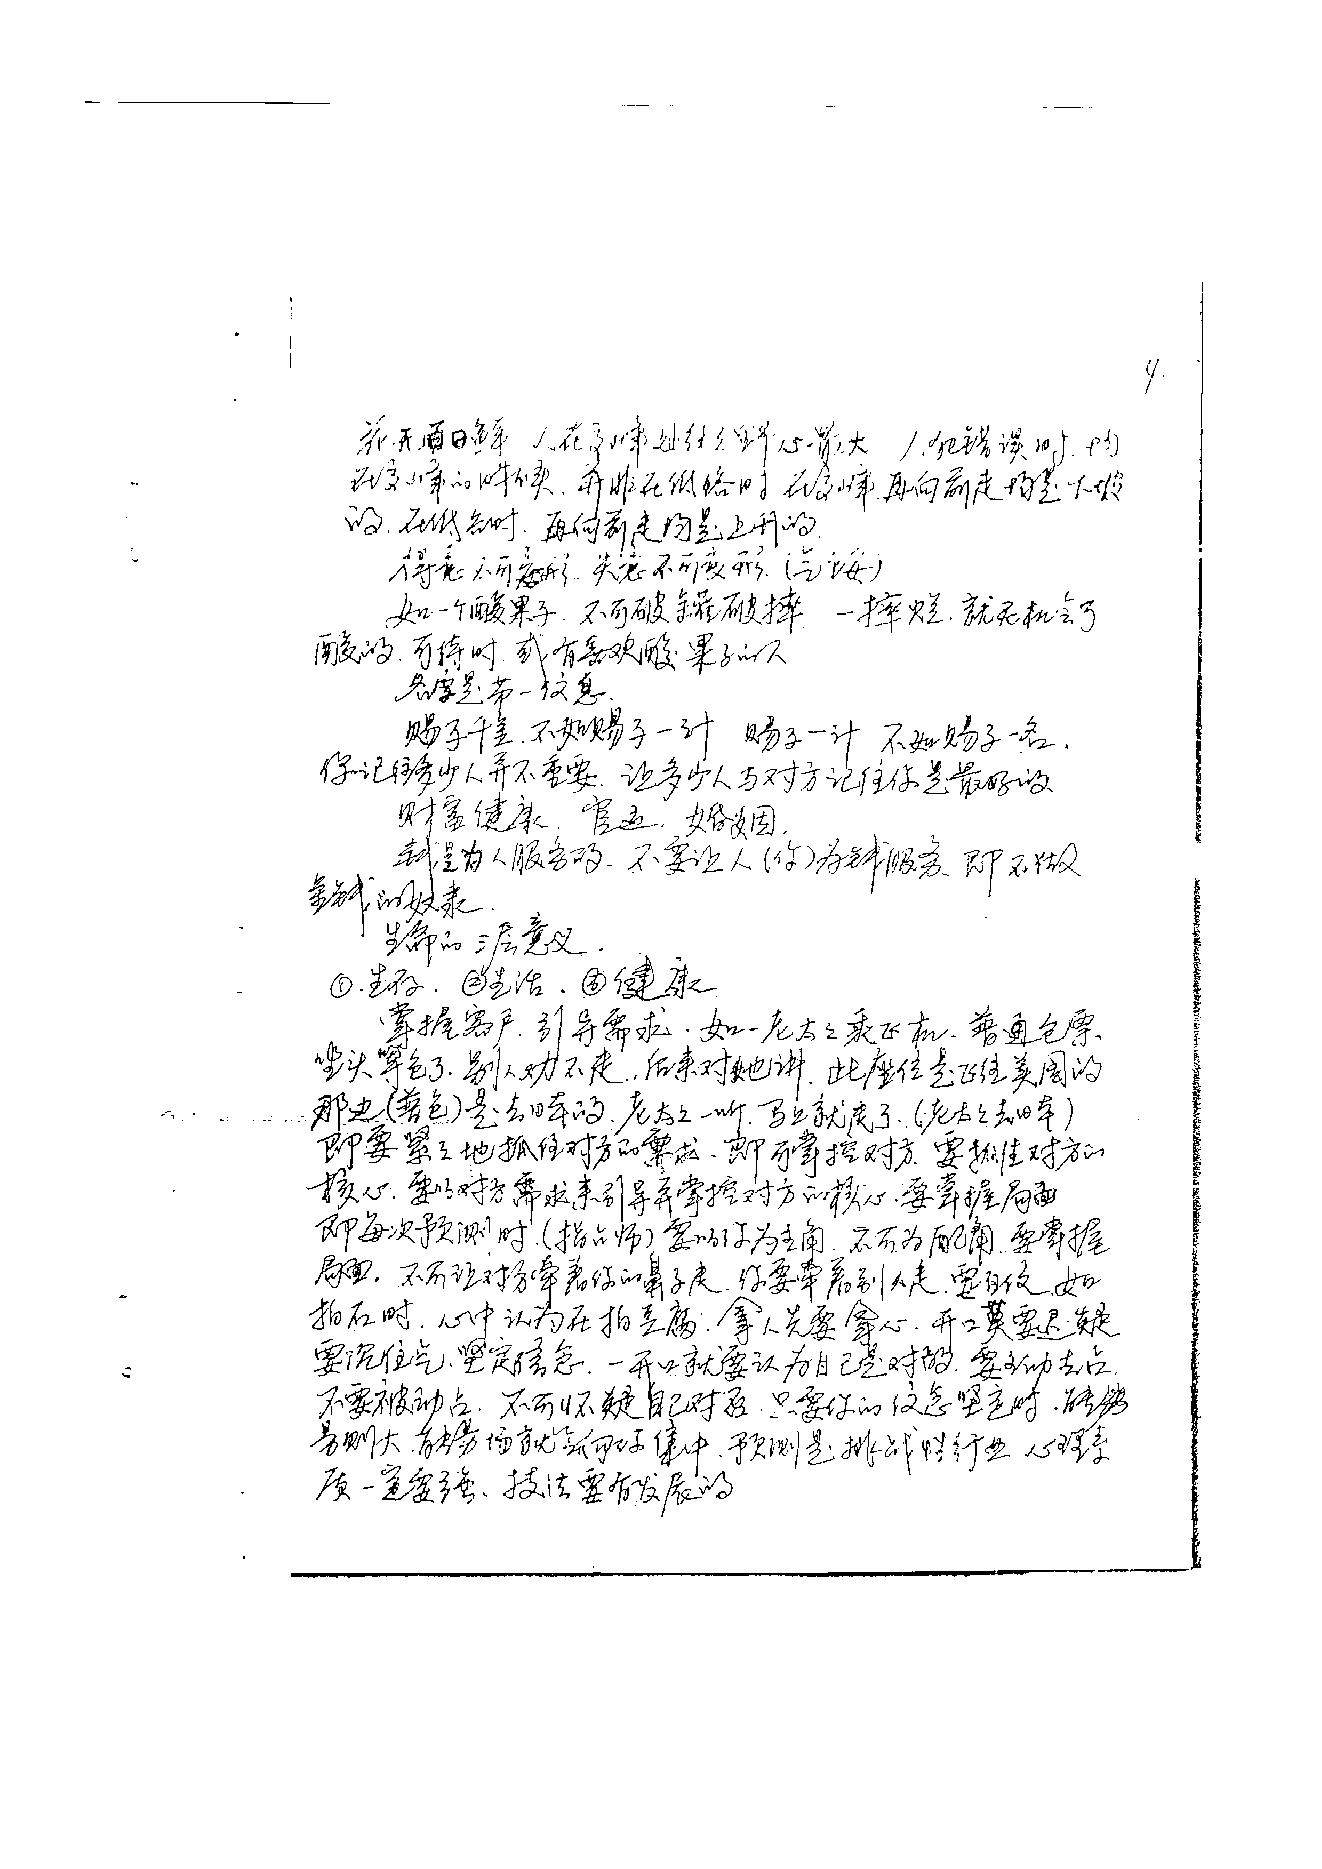 4.
花开百日鲜 人在高峰处往往野心最大 人犯错误时,均
在高峰的时候,并非在低谷时 在高峰,再向前走均是下坡
的,在低谷时,再向前走均是上升的。
得意不可忘形,失意不可变形,
如一个酸果子,不可破罐破摔 一摔烂,就无机会了
酸的,可待时,或有喜欢酸果子的人
名字是第一信息,
赐子千金,不如赐子一计 赐子一计 不如赐子一名,
你记住多少人并不重要,让多少人与对方记住你是最好的
财富健康,官运,婚姻,
钱是为人服务的,不要让人(你)为钱服务,即不做
金钱的奴隶.
生命的三层意义.
①.生存. ②生活. ③健康
掌握客户,引导需求.如一老太太乘飞机,普通仓票,
坐头等仓了,别人劝不走,后来对她讲,此座位是飞往美国的
那边(普仓)是去日本的,老太太一听,马上就走了,(老太太去日本)
即要紧紧地抓住对方的需求,即可掌控对方,要抓住对方的
核心,要以对方需求来引导并掌控对方的核心,要掌握局面
即每次预测时,(指占师)要以你为主角,不可为配角,要掌握
局面,不可让对方牵着你的鼻子走,你要牵着别人走,要自信,如
拍石时,心中认为在拍豆腐,拿人先要拿心,开口莫要迟疑
要沉住气,坚定信念,一开口就要认为自己是对的,要主动去占,
不要被动占,不可怀疑自己对否,只要你的信念坚定时,
易则大,有场就会向你集中,预测是挑战性行业 心理素
质一定要强,技法要有发展的